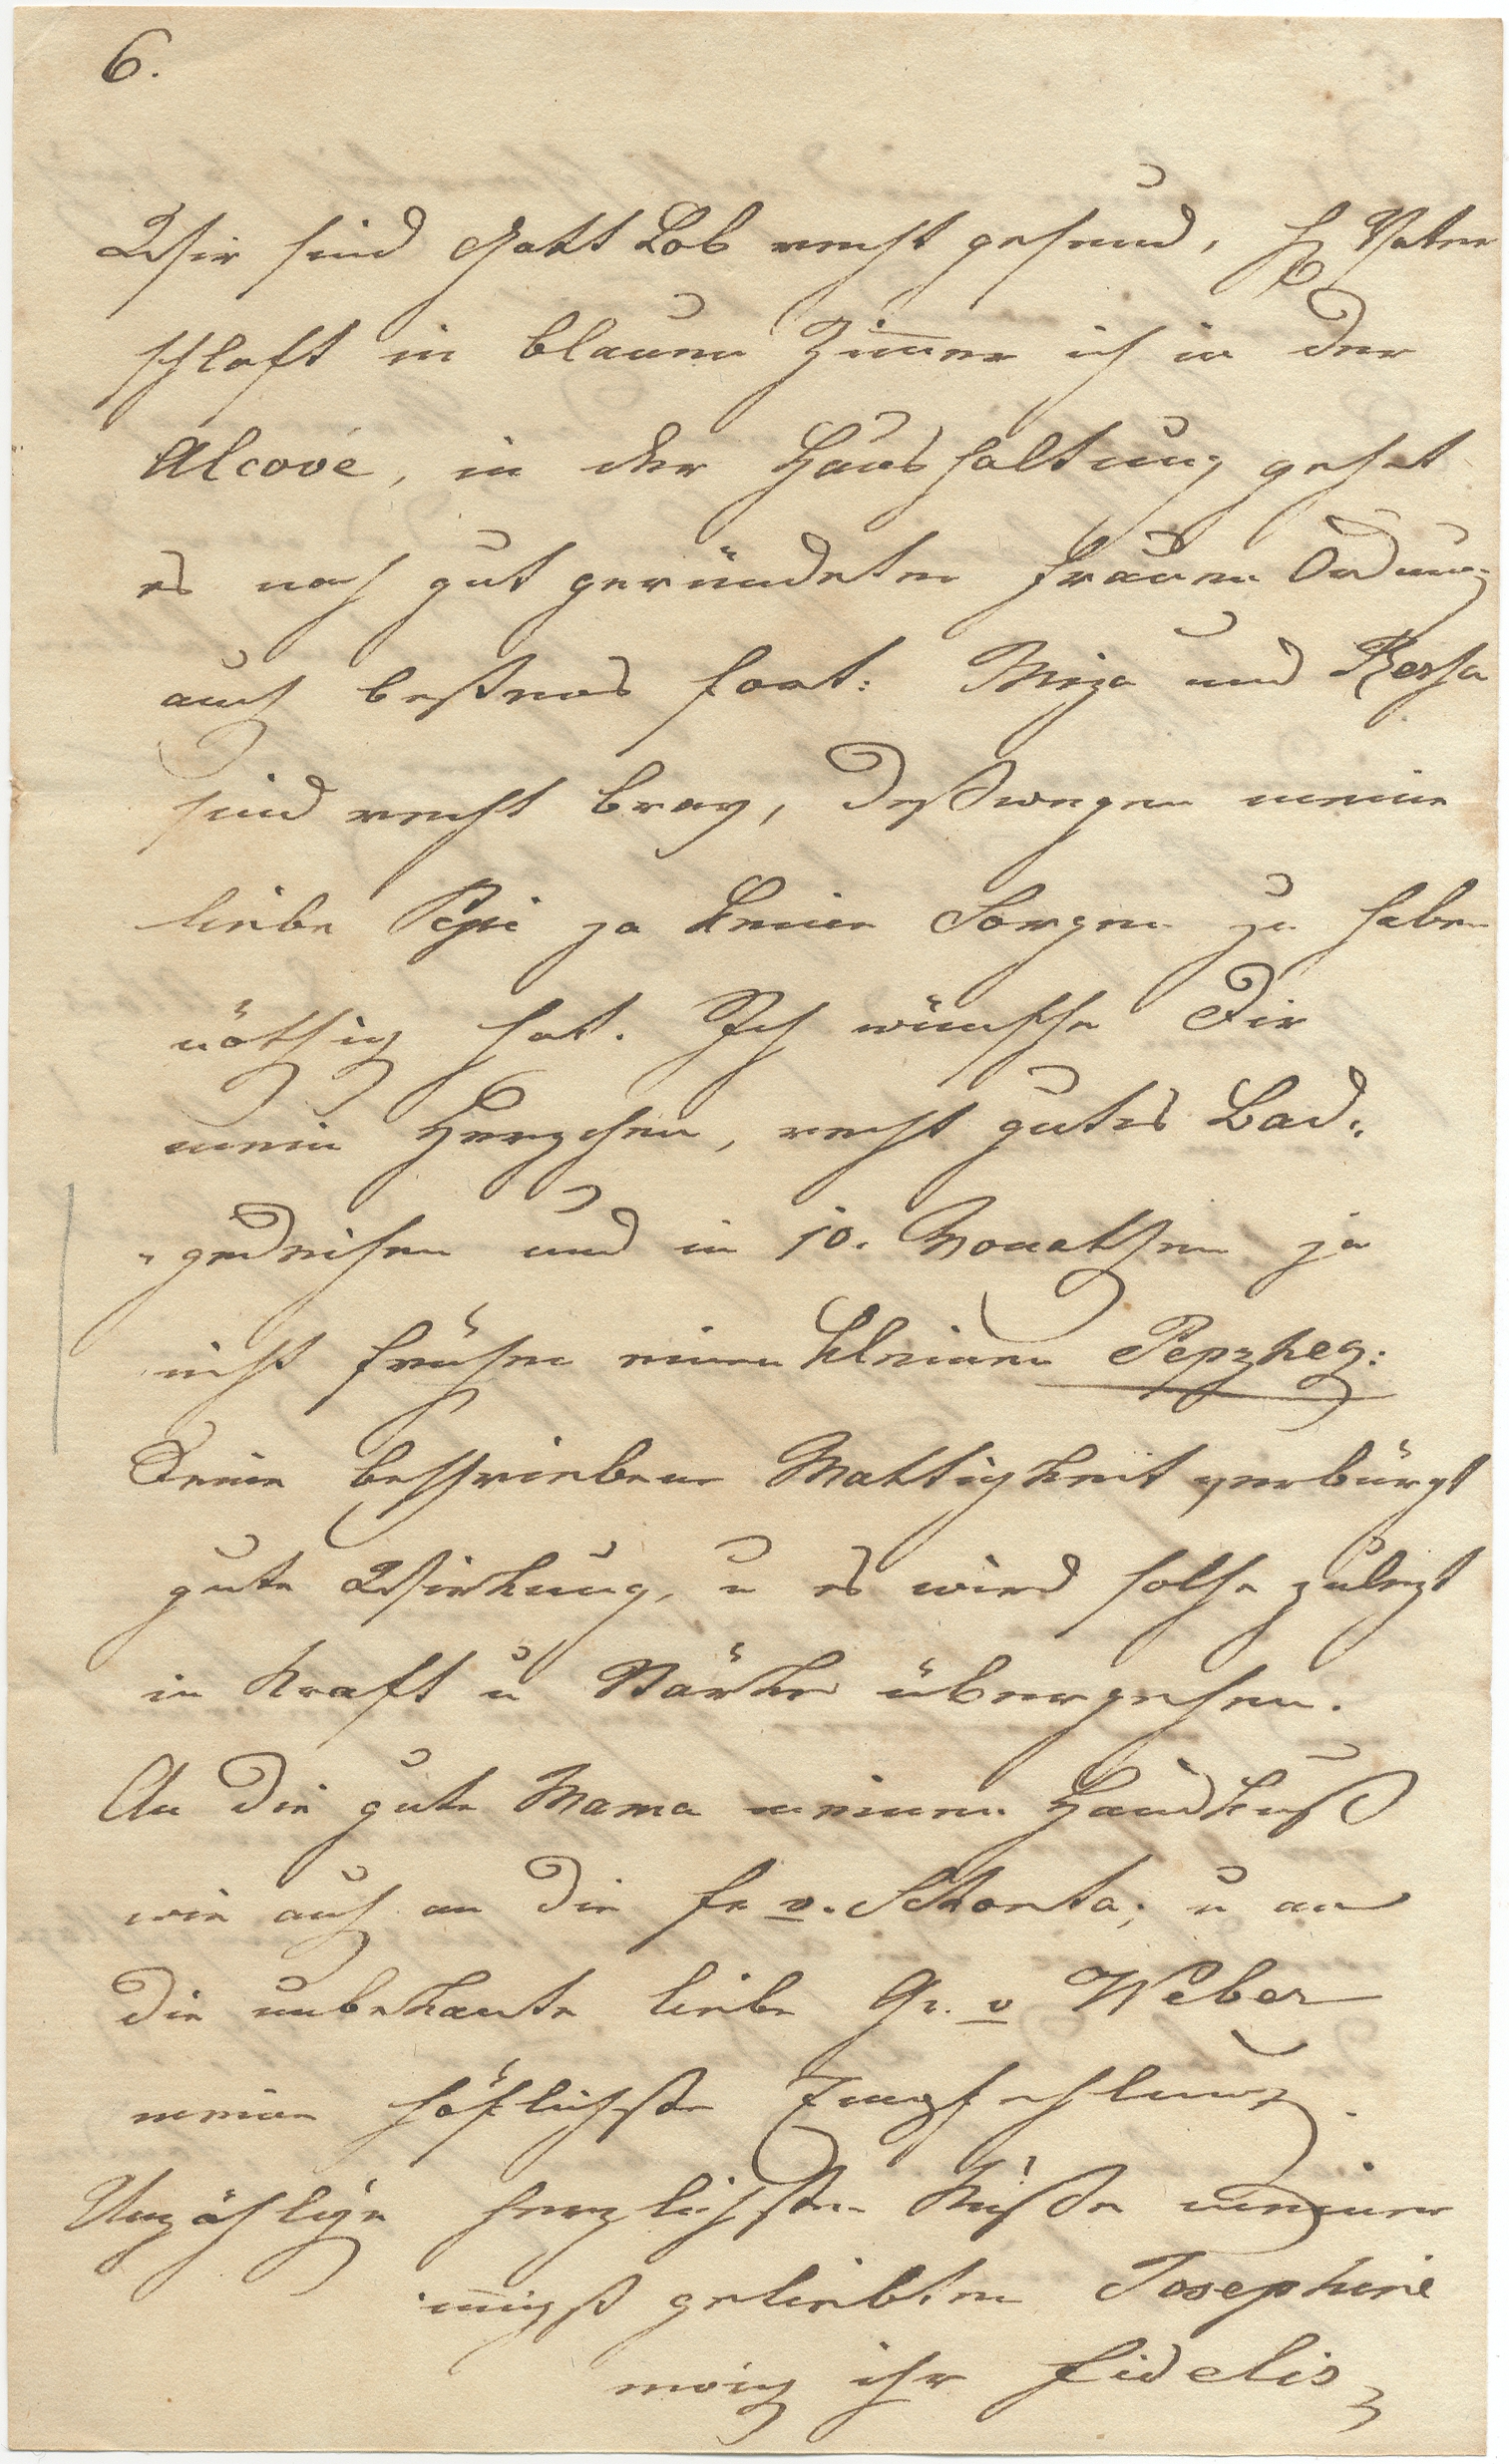 6.
Wir sind Gott Lob recht gesund, H Vater
schlaft in blauen Zimmer ich in der
Alcove, in der Haushaltung gehet
es nach gut geründeten Frauen Ordnung
auch bestens fort: Miza und Resha
sind recht brav, deßwegen meine
liebe Pepi ja keine Sorgen zu haben
nöthig hat. Ich wünsche Dir
mein Herzchen, recht gutes Bad:
"gedeihen und in 10. Monathen ja
nicht früher einen kleinen Pepzheg:
Deine beschriebene Mattigkeit verbürgt
gute Wirkung, u es wird solche zulezt
in Kraft u Stärke übergehen.
An die gute Mama meinen Handkuß
wie auch an die Fr v. Skonta; u an
die unbekante liebe Gr. v Weber
meine höflichste Empfehlung.
Unzählige herzlichste Küße meiner
innigst geliebten Josephine
ewig ihr Fidelis